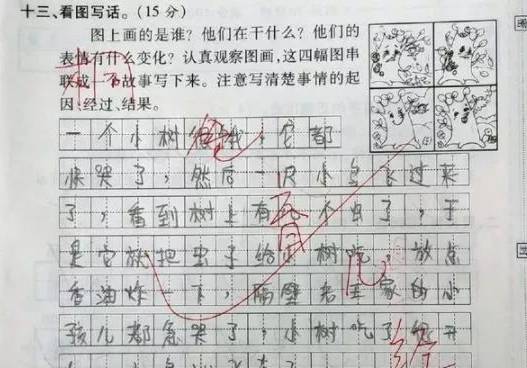 十三、看图写话。(15 分)
图上画的是谁?他们在干什么?他们的
表情有什么变化?认真观察图画,这四幅图串
联成一个故事写下来。注意写清楚事情的起
因、经过、结果。
一个小树很饿,它都
快哭了,然后一只小鸟飞过来
了,看到树上有 不虫了,于
是它就把虫子给小树吃,放点
香油炸一下,隔壁老王家的小
孩儿都急哭了,小树吃了很开